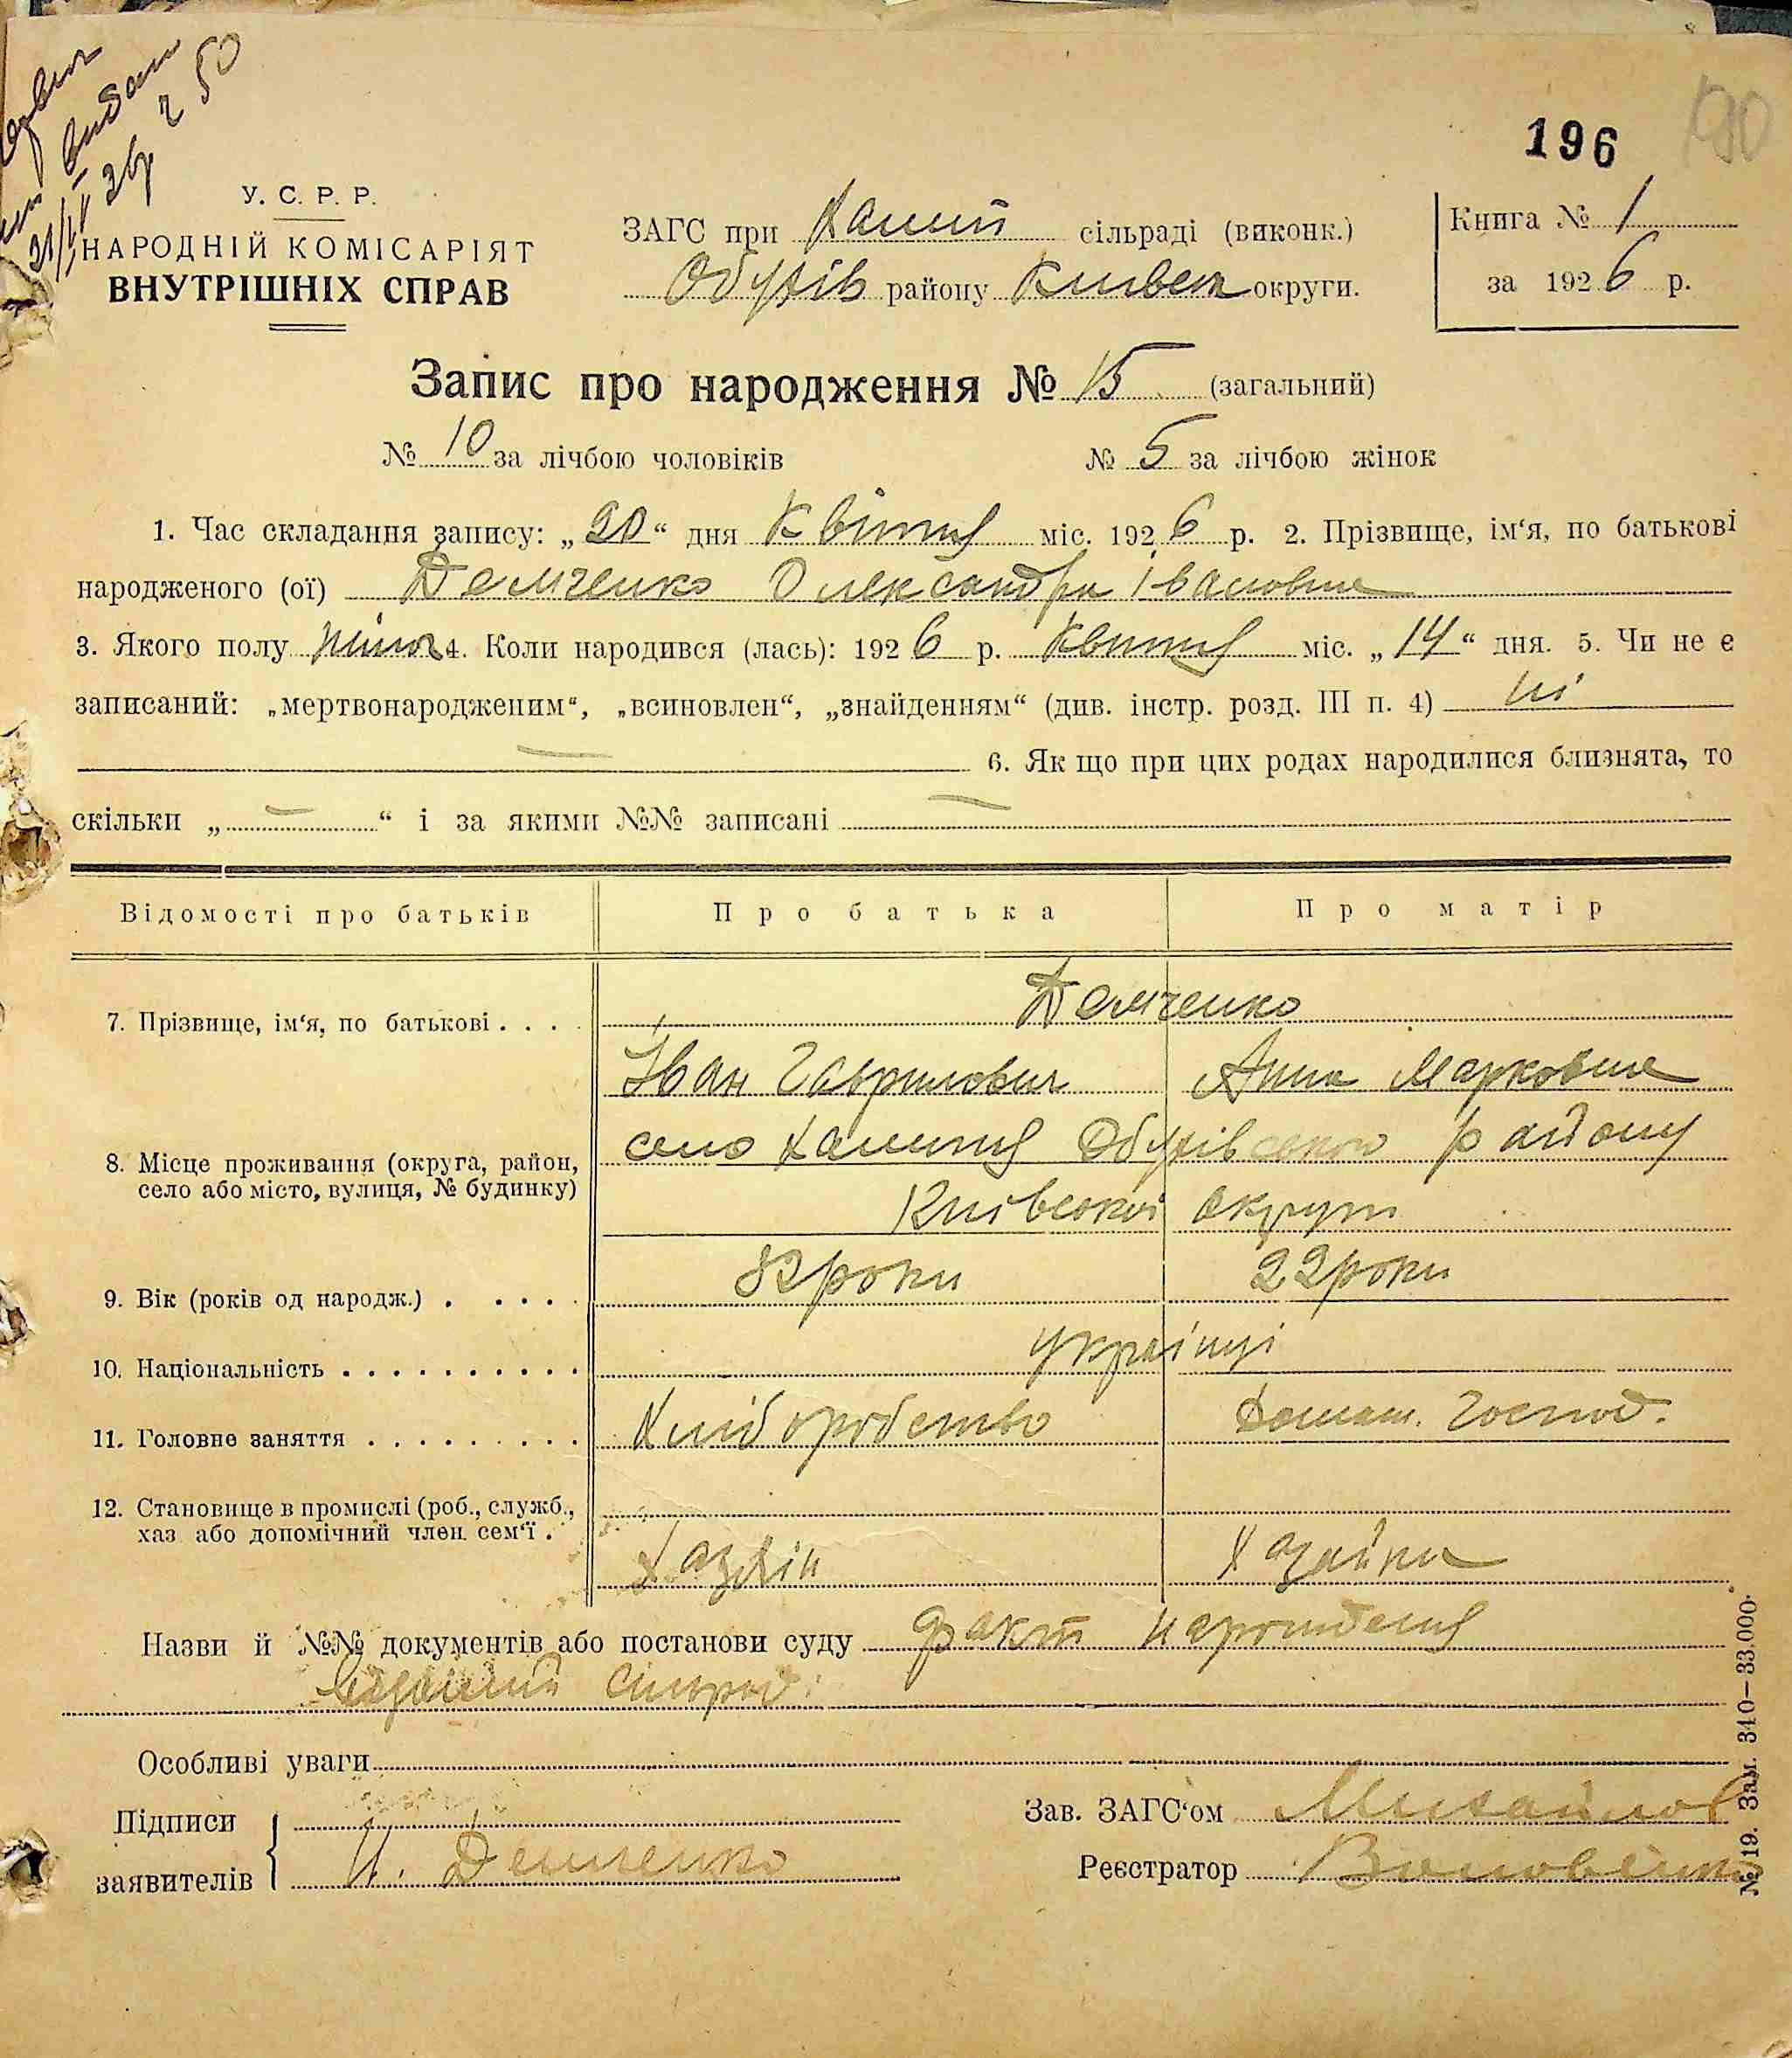 видан
50
196
190
У. С. Р. Р.
НАРОДНІЙ КОМІСАРІЯТ
ВНУТРІШНІХ СПРАВ
ЗАГС при сільраді (виконк.)
Обухів району Київськ округи.
Книга № 1
за 1926 р.
Запис про народження № 15 (загальний)
№ 10 за лічбою чоловіків № 5 за лічбою жінок
1. Час складання запису: „20“ дня Квітня міс. 1926 р. 2. Прізвище, ім‘я, по батькові
народженого (ої) Демченко Олександра Івановна
3. Якого полу жіноч 4. Коли народився (лась): 1926 р. Квітня міс. „14“ дня. 5. Чи не є
записаний: „мертвонародженим“, „всиновлен“, „знайденням“ (див. інстр. розд. III п. 4) ні
— 6. Як що при цих родах народилися близнята, то
скільки „ — “ і за якими №№ записані —
Відомості про батьків Про батька Про матір
7. Прізвище, ім‘я, по батькові . . . . Демченко
Іван Гаврилович Анна Марковна
8. Місце проживання (округа, район, село Обухівського району
село або місто, вулиця, № будинку) Київської округи
9. Вік (років од народж.) . . . . . 32 роки 22 роки
10. Національність . . . . . . . . . . українці
11. Головне заняття . . . . . . . . . Хліборобство Домаш. Господ.
12. Становище в промислі (роб., служб.,
хаз або допомічний член. сем‘ї . Хазяїн Хазяйка
Назви й №№ документів або постанови суду факт народження
відомий сільрад.
Особливі уваги
Підписи
заявителів И. Демченко
Зав. ЗАГС‘ом Михайлов
Реєстратор
№ 19. Зам. 340—33.000.